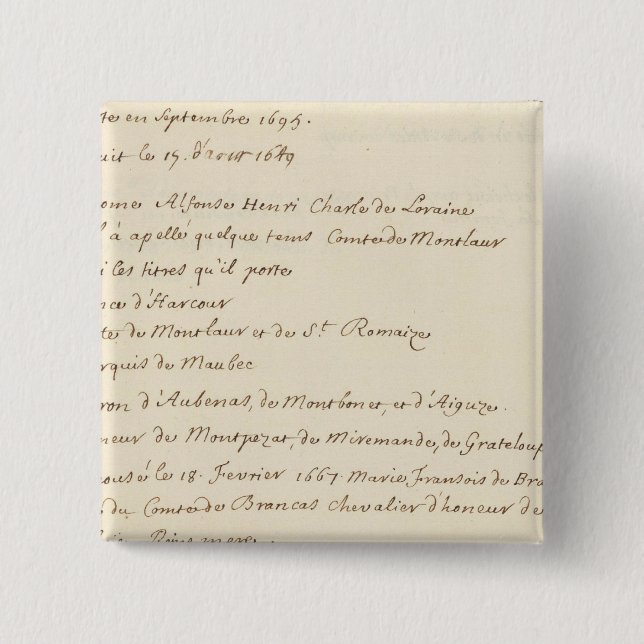 te en Septembre 1695.
uit le 15. d'aout 1649
ome Alfonse Henri Charle de Loraine
l'à apellé quelque tems Comte de Montlaur
i les titres qu'il porte
nce d'Harcour
te de Montlaur et de S.t Romaize
rquis de Maubec
ron d'Aubenas, de Montbonet, et d'Aiguze.
neur de Montpezat, de Miremande, de Grateloup
ousé le 18. Fevrier 1667. Marie Fransois de Bra
du Comte de Brancas chevalier d'honeur de
Reine mere.